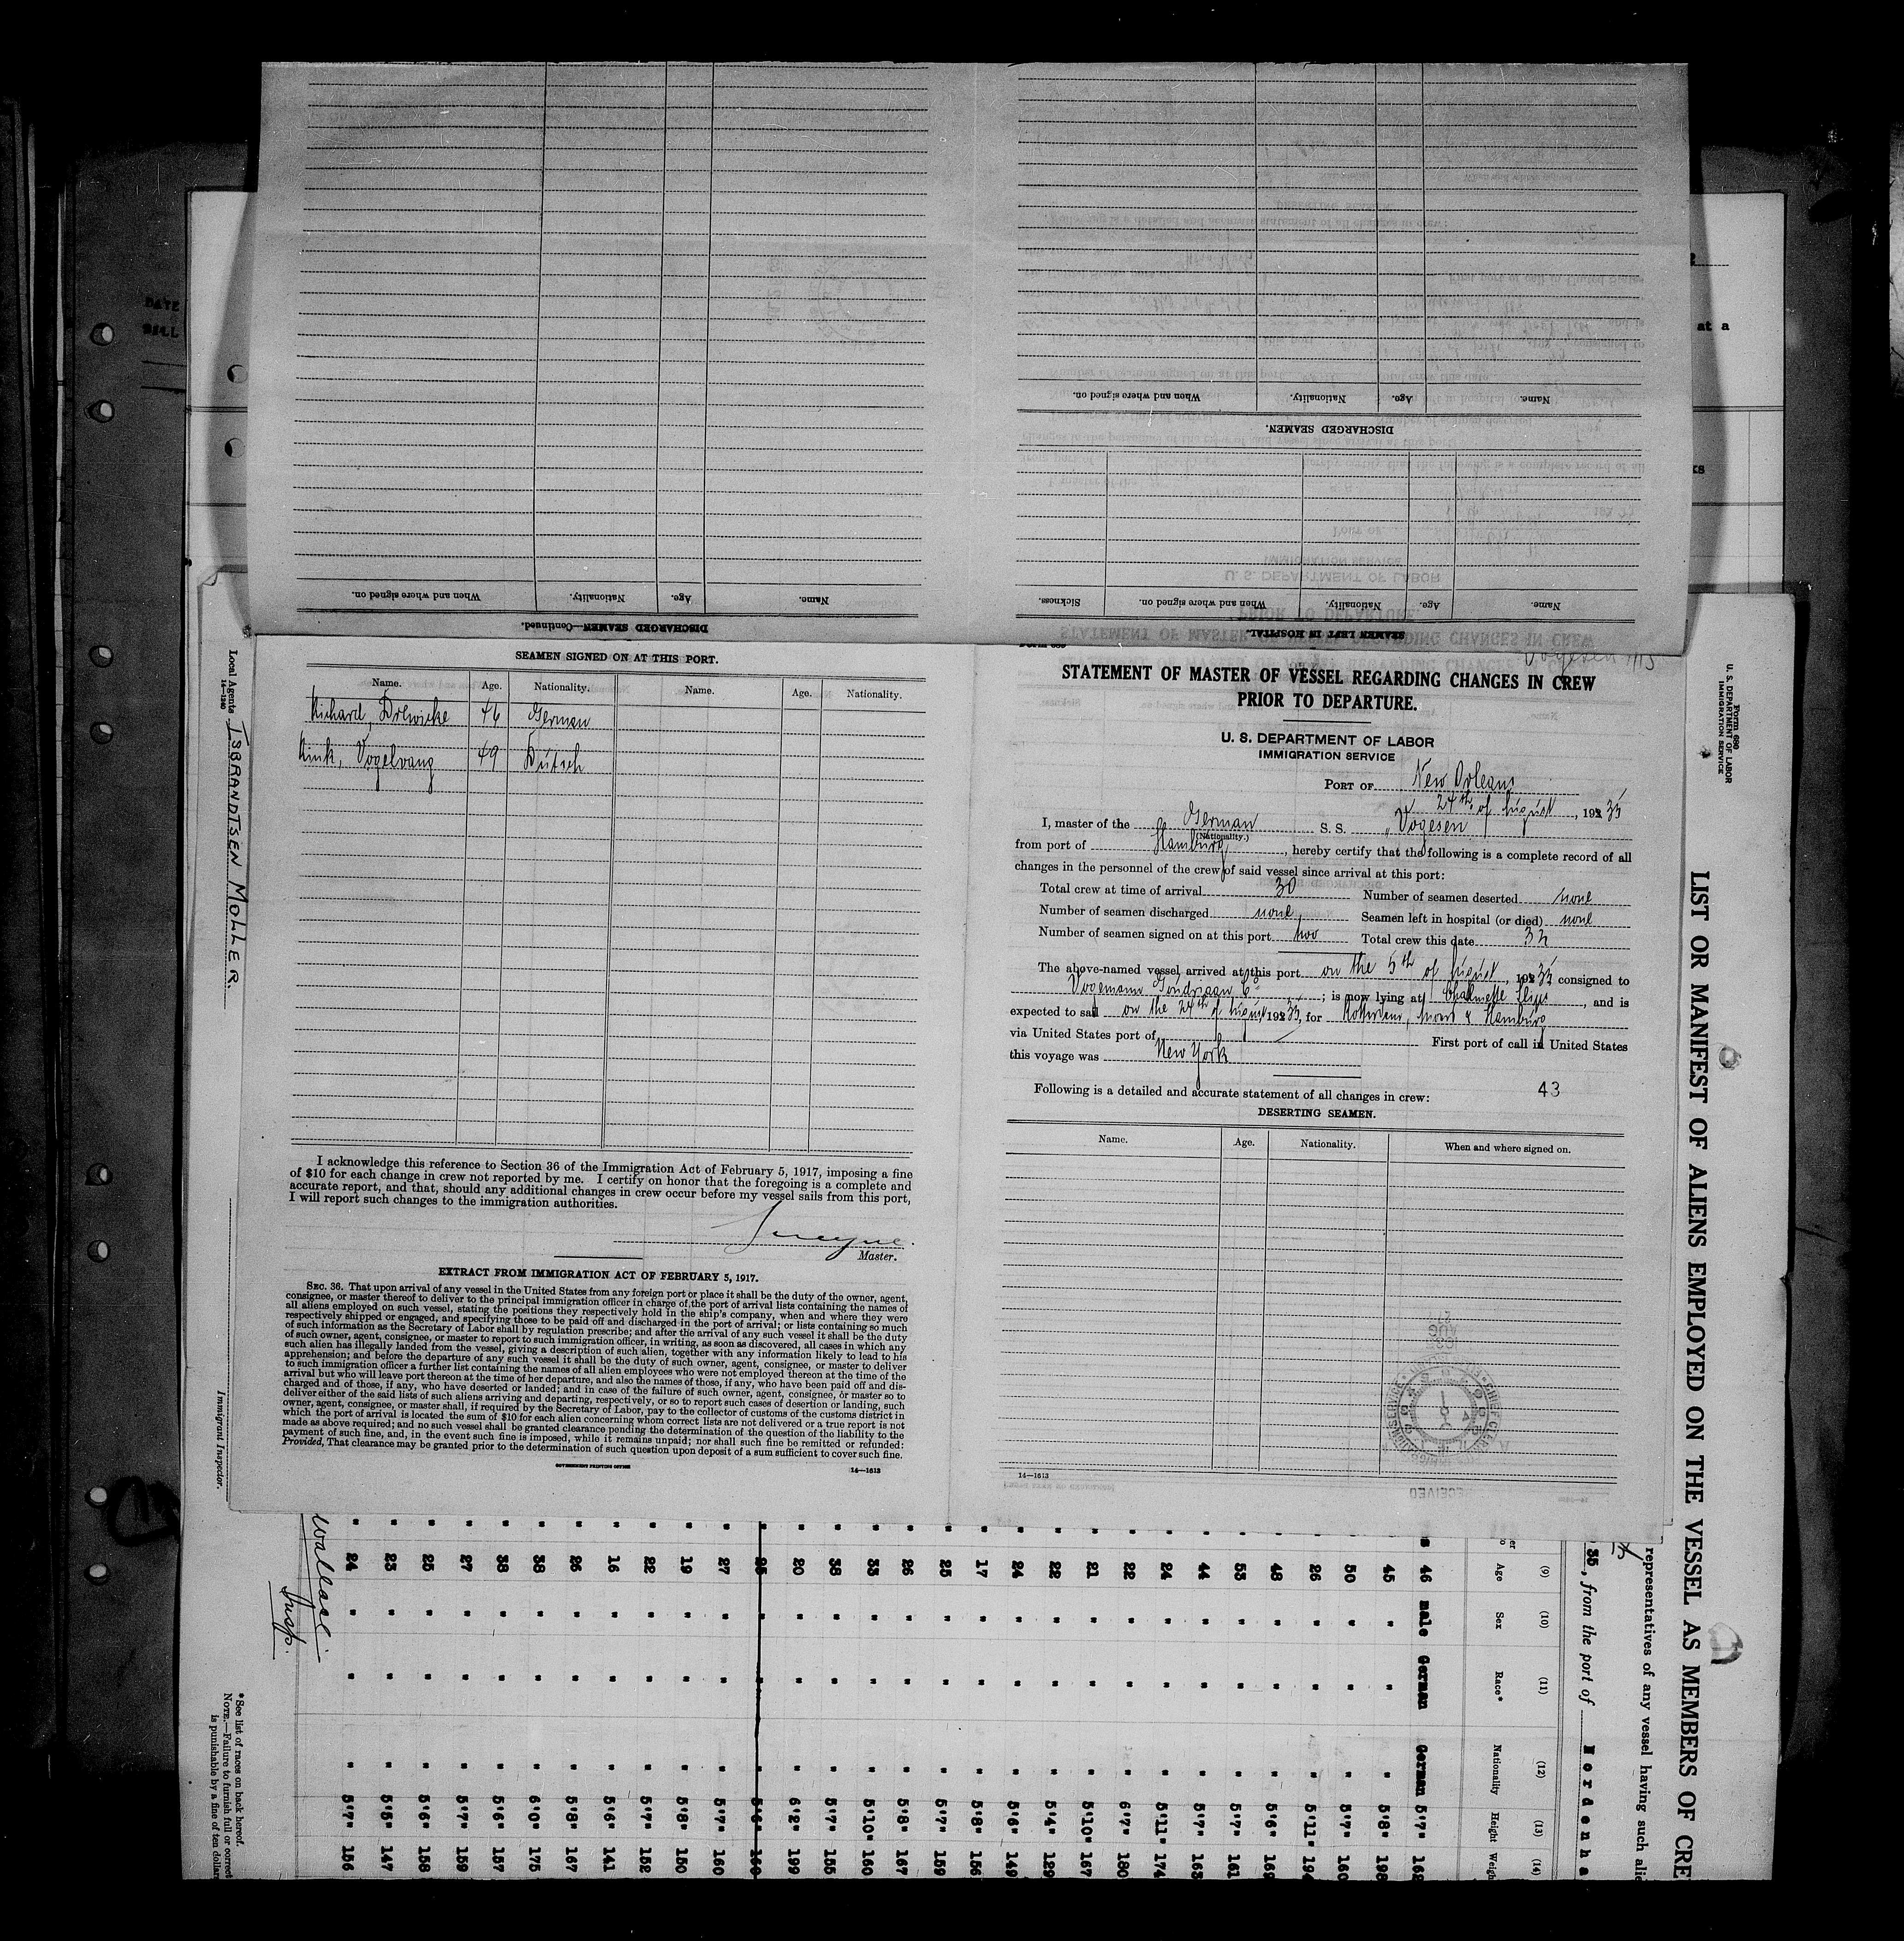 DISCHARGED SEAMEN—Continued.
Name.
Age.
Nationality.
When and where signed on.
SEAMEN LEFT IN HOSPITAL.
Name.
Age.
Nationality.
When and where signed on.
Sickness.
DISCHARGED SEAMEN.
Name.
Age.
Nationality.
When and where signed on.
SEAMEN SIGNED ON AT THIS PORT.
Name. Age. Nationality. Name. Age. Nationality.
Richard, Drewicke 46 German
Vogelvang 49 Dutsch
I acknowledge this reference to Section 36 of the Immigration Act of February 5, 1917, imposing a fine
of $10 for each change in crew not reported by me. I certify on honor that the foregoing is a complete and
accurate report, and that, should any additional changes in crew occur before my vessel sails from this port,
I will report such changes to the immigration authorities.
Master.
EXTRACT FROM IMMIGRATION ACT OF FEBRUARY 5, 1917.
SEC. 36. That upon arrival of any vessel in the United States from any foreign port or place it shall be the duty of the owner, agent,
consignee, or master thereof to deliver to the principal immigration officer in charge of the port of arrival lists containing the names of
all aliens employed on such vessel, stating the positions they respectively hold in the ship's company, when and where they were
respectively shipped or engaged, and specifying those to be paid off and discharged in the port of arrival; or lists containing so much
of such information as the Secretary of Labor shall by regulation prescribe; and after the arrival of any such vessel it shall be the duty
of such owner, agent, consignee, or master to report to such immigration officer, in writing, as soon as discovered, all cases in which any
such alien has illegally landed from the vessel, giving a description of such alien, together with any information likely to lead to his
apprehension; and before the departure of any such vessel it shall be the duty of such owner, agent, consignee, or master to deliver
to such immigration officer a further list containing the names of all alien employees who were not employed thereon at the time of the
arrival but who will leave port thereon at the time of her departure, and also the names of those, if any, who have been paid off and dis-
charged and of those, if any, who have deserted or landed; and in case of the failure of such owner, agent, consignee, or master so to
deliver either of the said lists of such aliens arriving and departing, respectively, or so to report such cases of desertion or landing, such
owner, agent, consignee, or master shall, if required by the Secretary of Labor, pay to the collector of customs of the customs district in
which the port of arrival is located the sum of $10 for each alien concerning whom correct lists are not delivered or a true report is not
made as above required; and no such vessel shall be granted clearance pending the determination of the question of the liability to the
payment of such fine, and, in the event such fine is imposed, while it remains unpaid; nor shall such fine be remitted or refunded:
Provided, That clearance may be granted prior to the determination of such question upon deposit of a sum sufficient to cover such fine.
GOVERNMENT PRINTING OFFICE 14—1613
Vogesen
STATEMENT OF MASTER OF VESSEL REGARDING CHANGES IN CREW
PRIOR TO DEPARTURE.
U. S. DEPARTMENT OF LABOR
IMMIGRATION SERVICE
PORT OF New Orleans
24th of August, 1935
I, master of the German S. S. "Vogesen"
(Nationality.)
from port of Hamburg, hereby certify that the following is a complete record of all
changes in the personnel of the crew of said vessel since arrival at this port:
Total crew at time of arrival 30 Number of seamen deserted none
Number of seamen discharged none Seamen left in hospital (or died) none
Number of seamen signed on at this port two Total crew this date 32
The above-named vessel arrived at this port on the 5th of August, 1935 consigned to
Vogemann Goudriaan Co ; is now lying at Chalmette Slips, and is
expected to sail on the 24th of August 1935, for Rotterdam, & Hamburg
via United States port of — First port of call in United States
this voyage was New York
Following is a detailed and accurate statement of all changes in crew: 43
DESERTING SEAMEN.
Name. Age. Nationality. When and where signed on.
14—1613
RECEIVED
Local Agents ISBRANDTSEN MOLLER.
14—1240
Immigrant Inspector.
Form 680
U. S. DEPARTMENT OF LABOR
IMMIGRATION SERVICE
LIST OR MANIFEST OF ALIENS EMPLOYED ON THE VESSEL AS MEMBERS OF CRE
representatives of any vessel having such alie
35, from the port of Nordenha
(9) (10) (11) (12) (13) (14)
Age Sex Race* Nationality Height Weigh
46 male German German 5'7" 162
45 " " " 5'8" 198
50 " " " 5'7" 160
26 " " " 5'11" 194
48 " " " 5'6" 169
53 " " " 5'7" 161
44 " " " 5'7" 163
24 " " " 5'11" 174
22 " " " 6'7" 180
21 " " " 5'10" 167
22 " " " 5'4" 129
24 " " " 5'6" 149
17 " " " 5'8" 156
25 " " " 5'7" 159
26 " " " 5'8" 167
33 " " " 5'10" 160
38 " " " 5'7" 155
20 " " " 6'2" 199
25 " " " 5'6" 160
27 " " " 5'7" 160
19 " " " 5'8" 150
22 " " " 5'7" 152
16 " " " 5'6" 141
26 " " " 5'8" 167
38 " " " 6'0" 175
38 " " " 5'6" 157
27 " " " 5'7" 159
25 " " " 5'6" 158
23 " " " 5'5" 147
24 " " " 5'7" 156
Wallace
Insp.
*See list of races on back hereof.
NOTE.—Failure to furnish full or correct
is punishable by a fine of ten dollar
DATE
BILL
at a